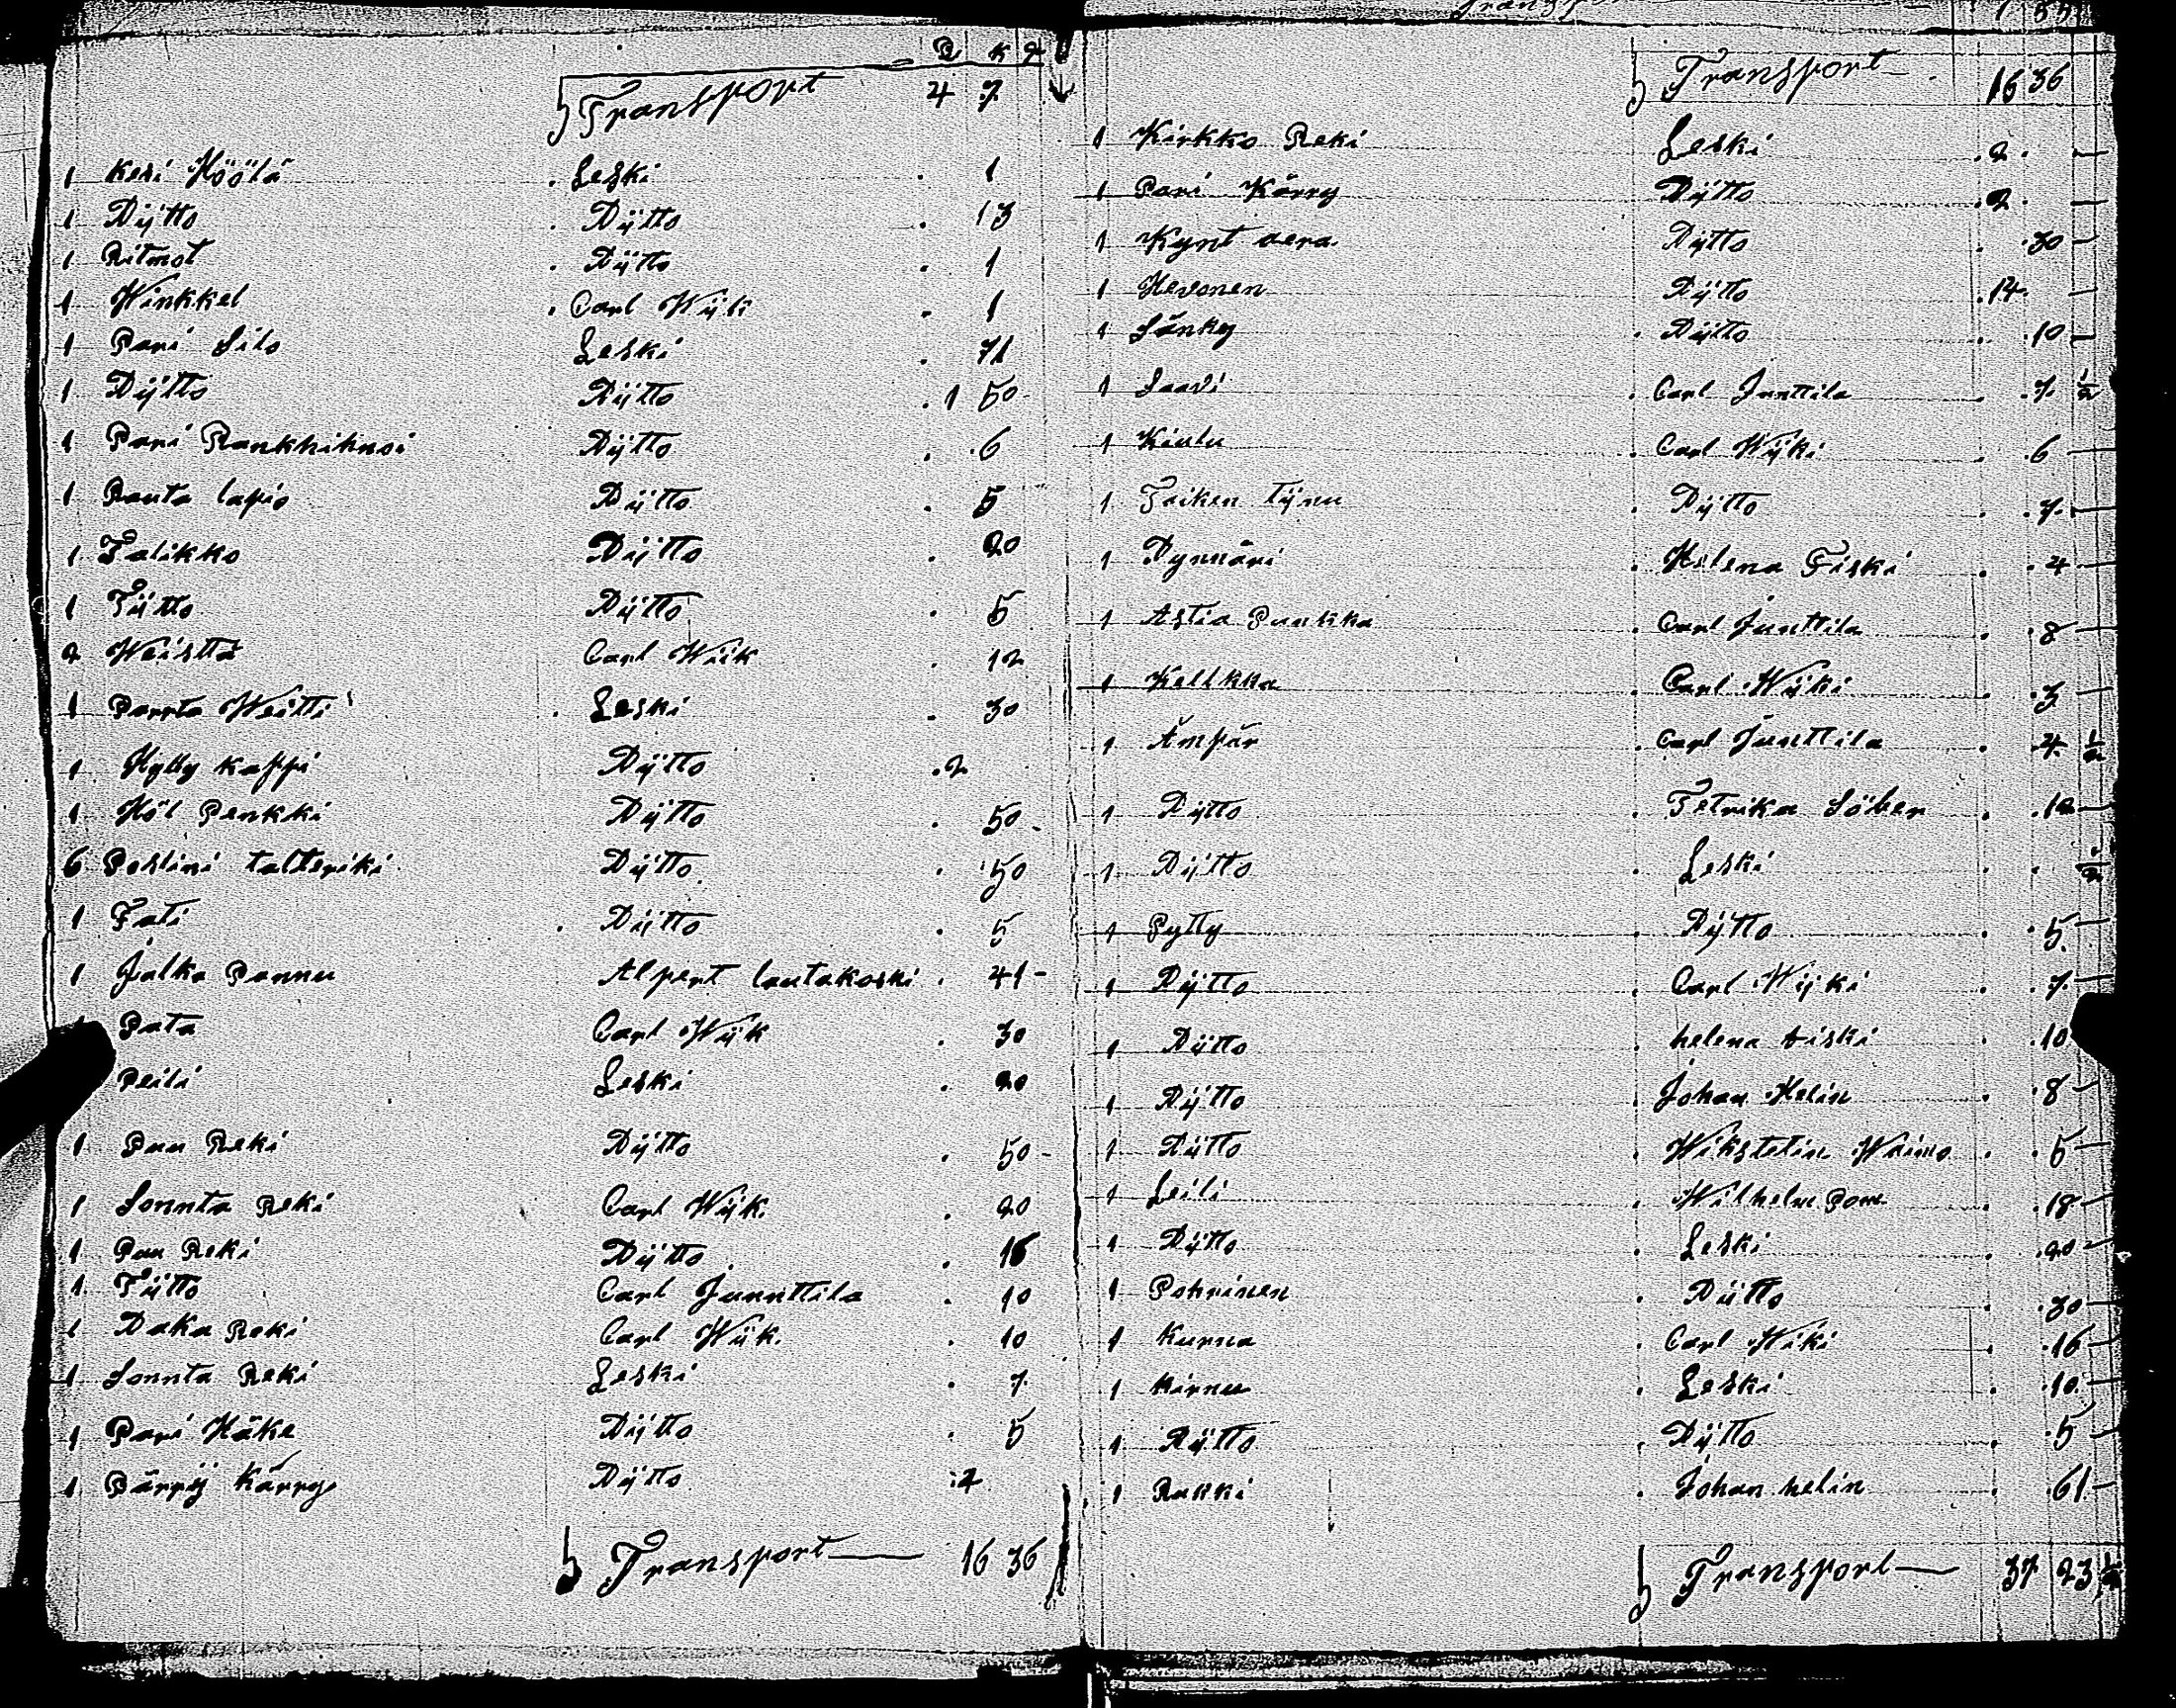 R k
Transport 4 7
1 Kesi Höölä Leski 1
1 Dÿtto Dÿtto 13
1 Ritmot Dÿtto 1
1 Winkkel Carl Wÿk 1
1 Pari Silo Leski 71
1 Dÿtto Dÿtto 1 50
1 Pari Dÿtto 6
1 Rauta lapio Dÿtto 5
1 Talikko Dÿtto 20
1 Tÿtto Dÿtto 5
2 Weistta Carl Wiik 12
1 Parrta Weitti Leski 30
1 Hylly kappi Dÿtto 2
1 Höl Penkki Dÿtto 50
6 Poslini talteriki Dÿtto 50
1 Fati Dÿtto 5
1 Jalka Pannu Alpert lautakoski 41
Pata Carl Wÿk 30
Peili Leski 20
1 Puu Reki Dÿtto 50
1 Sonnta Reki Carl Wÿk. 20
1 Puu Reki Dÿtto 16
1 Tÿtto Carl Junnttila 10
1 Daka Reki Carl Wÿk. 10
1 Sonnta Reki Leski 7
1 Pari Häke Dÿtto 5
1 Pärrÿ Kärry Dÿtto 2
Transport 16 36
Transport 16 36
1 Kirkko Reki Leski 2 —
1 Pari Kärry Dÿtto 2 —
1 Kynt aera Dÿtto 30 —
1 Hevonen Dÿtto 14 —
1 Sänky Dÿtto 10 —
1 Saavi Carl Junttila 7 ½
1 Kiulu Carl Wÿki 6 —
1 Taiken tÿnu Dÿtto 7 —
1 Dynnäri Helena Fiski 4 —
1 Astia Punkka Carl Junttila 8 —
1 Kelkka Carl Wÿki 3 —
1 Ämpär Carl Junttila 4 ½
1 Dÿtto Fetrika Söber 12 —
1 Dÿtto Leski ½
1 Pytty Dÿtto 5 —
1 Dÿtto Carl Wÿki 7 —
1 Dÿtto helena fiski 10
1 Dÿtto Johan Helin 8 —
1 Dÿtto Wikstetin Wäino 5 —
1 Seili Wilhelm 18 —
1 Dÿtto Leski 20 —
1 Pohrinen Dÿtto 30 —
1 Kurna Carl Wiki 16 —
1 Kirnu Leski 10 —
1 Dÿtto Dÿtto 5 —
1 Rukki Johan helin 61 —
Transport 37 23 ½